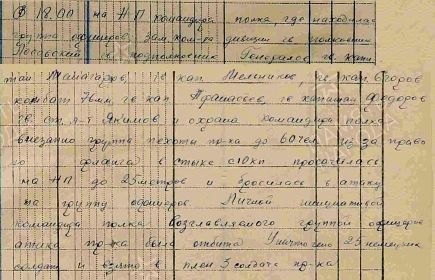 В 18.00 на НП командира полка, где находилась
группа офицеров: Зам. ком-ра дивизии гв. полковник
гв. подполковник Генералов гв. капи-
тан гв кап. Мельников, гв. кап. Егоров
комбат гв кап. гв капитан Федоров
гв. ст. л-т Якимов и охрана командира полка
внезапно группа пехоты пр-ка до 60 чел. из за право
го фланга в стыке с 10 кп просочилась
на НП до 25 метров и бросилась в атаку
на группу офицеров. Личной инициативой
командира полка возглавляемого группой офицеров
атака пр-ка была отбита Уничтожено 25 немецких
солдат и взято в плен 3 солдата пр-ка